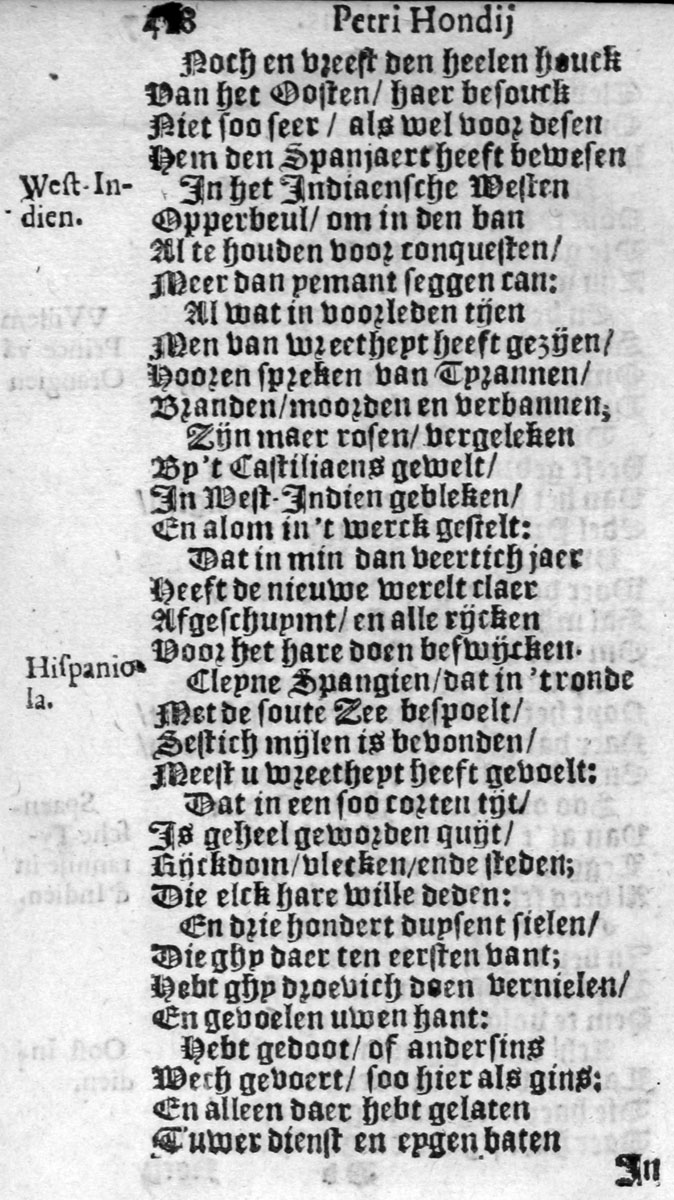 Petri Hondij
Noch en vreest den heelen houck
Van het Oosten/ haer besouck
Niet soo seer / als wel voor desen
Hem den Spanjaert heeft bewesen
West-In-
dien.
In het Indiaensche Westen
Opperbeul/ om in den ban
Al te houden voor conquesten/
Meer dan yemant seggen can:
Al wat in voorleden tijen
Men van wreetheyt heeft gezijen/
Hooren spreken van Tyrannen/
Branden/moorden en verbannen;
Zijn maer rosen/ vergeleken
By 't Castiliaens gewelt/
In West-Indien gebleken/
En alom in 't werck gestelt:
Dat in min dan veertich jaer
Heeft de nieuwe werelt claer
Afgeschuymt/ en alle rijcken
Voor het hare doen beswijcken.
Hispanio-
la.
Cleyne Spangien/dat in 'tronde
Met de soute Zee bespoelt/
Sestich mijlen is bevonden/
Meest u wreetheyt heeft gevoelt:
Dat in een soo corten tijt/
Is geheel geworden quijt/
Rijckdom/vlecken/ende steden;
Die elck hare wille deden:
En drie hondert duysent sielen/
Die ghy daer ten eersten vant;
Hebt ghy droevich doen vernielen/
En gevoelen uwen hant:
Hebt gedoot/ of andersins
Wech gevoert/ soo hier als gins;
En alleen daer hebt gelaten
T'uwer dienst en eygen baten
In